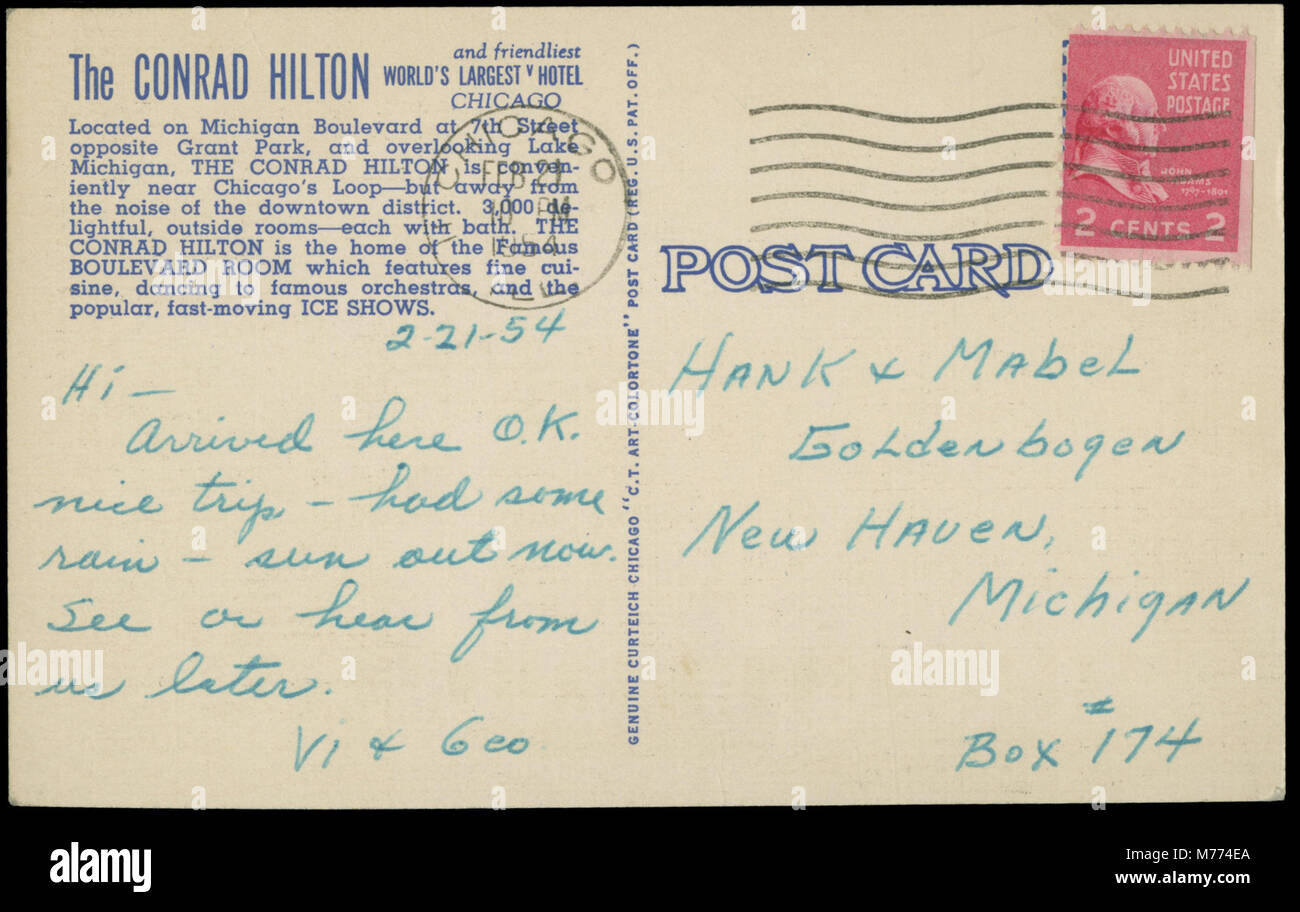 The CONRAD HILTON
and friendliest
WORLD'S LARGEST v HOTEL
CHICAGO
Located on Michigan Boulevard at 7th Street
opposite Grant Park, and overlooking Lake
Michigan, THE CONRAD HILTON is conven-
iently near Chicago's Loop—but away from
the noise of the downtown district. 3,000 de-
lightful, outside rooms—each with bath. THE
CONRAD HILTON is the home of the Famous
BOULEVARD ROOM which features fine cui-
sine, dancing to famous orchestras, and the
popular, fast-moving ICE SHOWS.
CHICAGO
FEB 21
PM
1954
ILL
2-21-54
Hi –
Arrived here O.K.
nice trip – had some
rain – sun out now.
See or hear from
us later.
Vi & Geo
GENUINE CURTEICH-CHICAGO "C.T. ART-COLORTONE" POST CARD (REG. U.S. PAT. OFF.)
UNITED
STATES
POSTAGE
JOHN
ADAMS
1797-1801
2 CENTS 2
POST CARD
Hank & Mabel
Goldenbogen
New Haven,
Michigan
Box #174
alamy
alamy
Image ID: M774EA
www.alamy.com